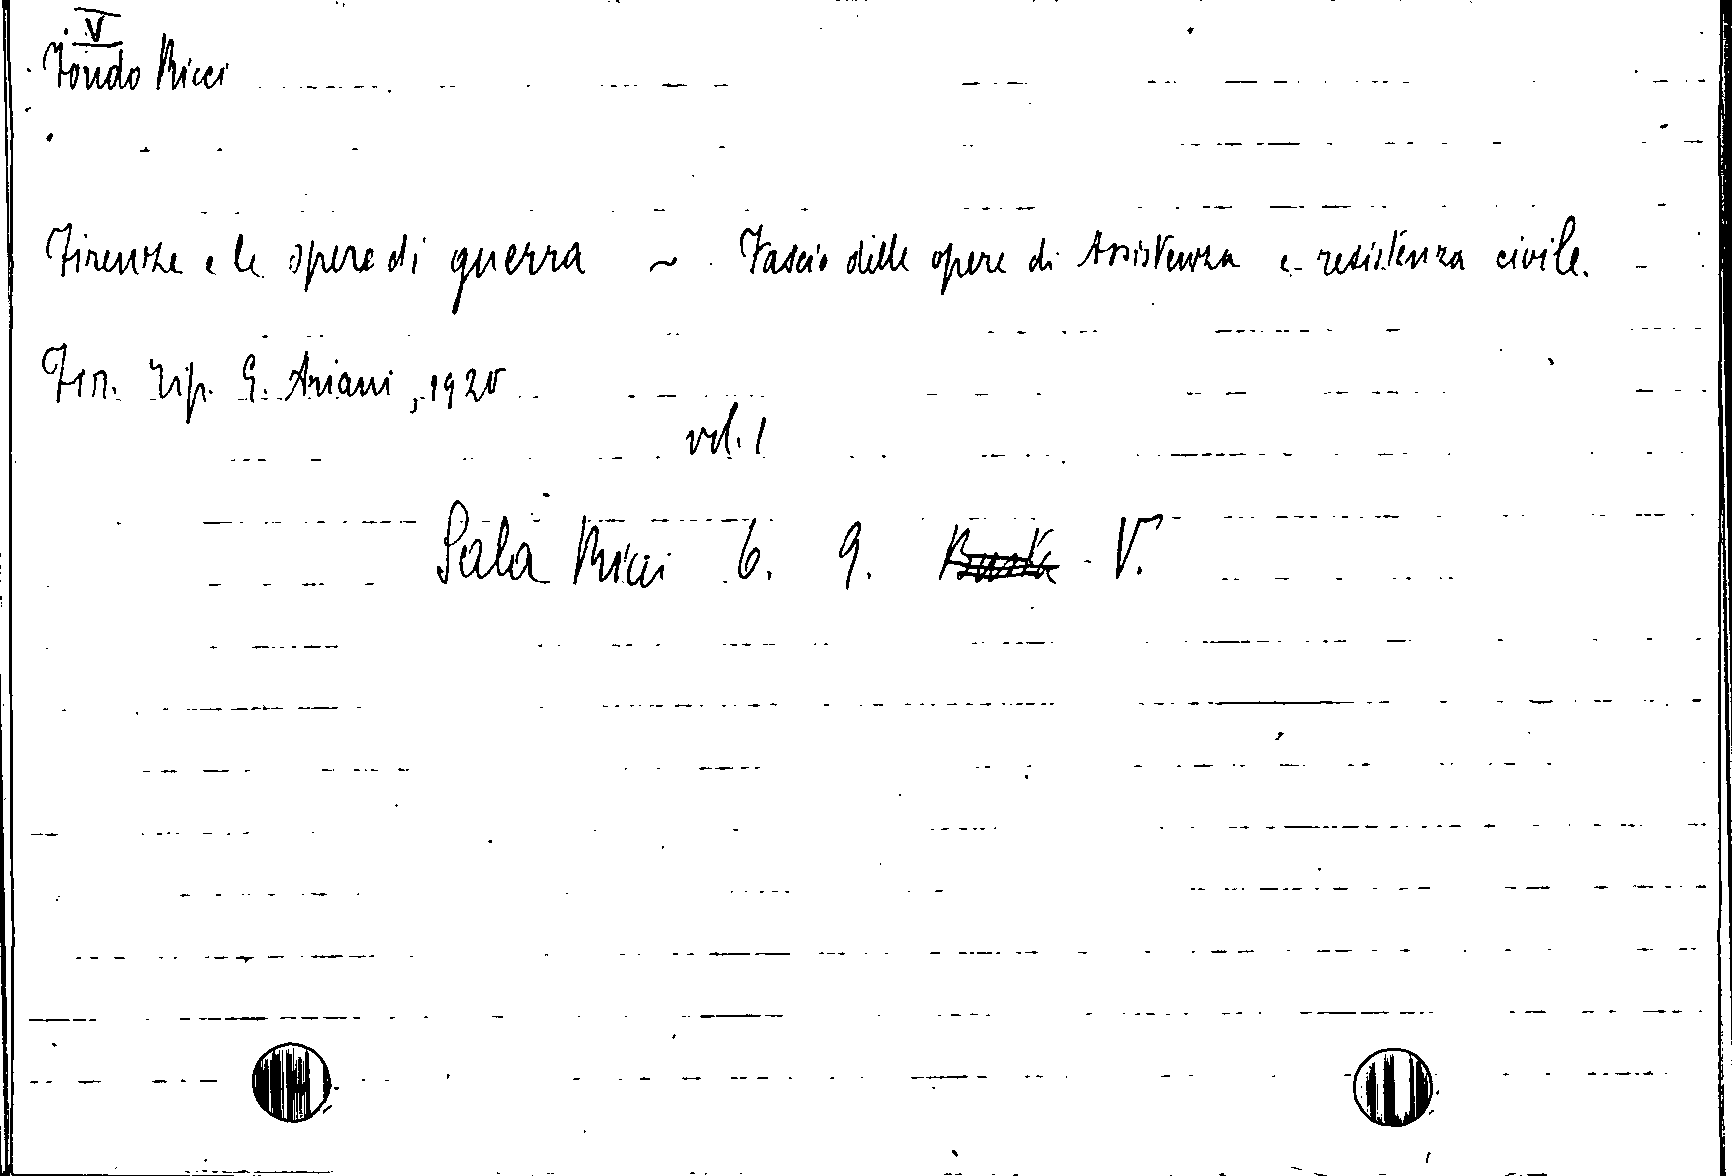 V
Fondo Ricci
Firenze e le opere di guerra ~ Fascio delle opere di Assistenza e resistenza civile.
Fir. Tip. G. Ariani, 1920
vol. 1
Sala Ricci 6. 9. Busta V.